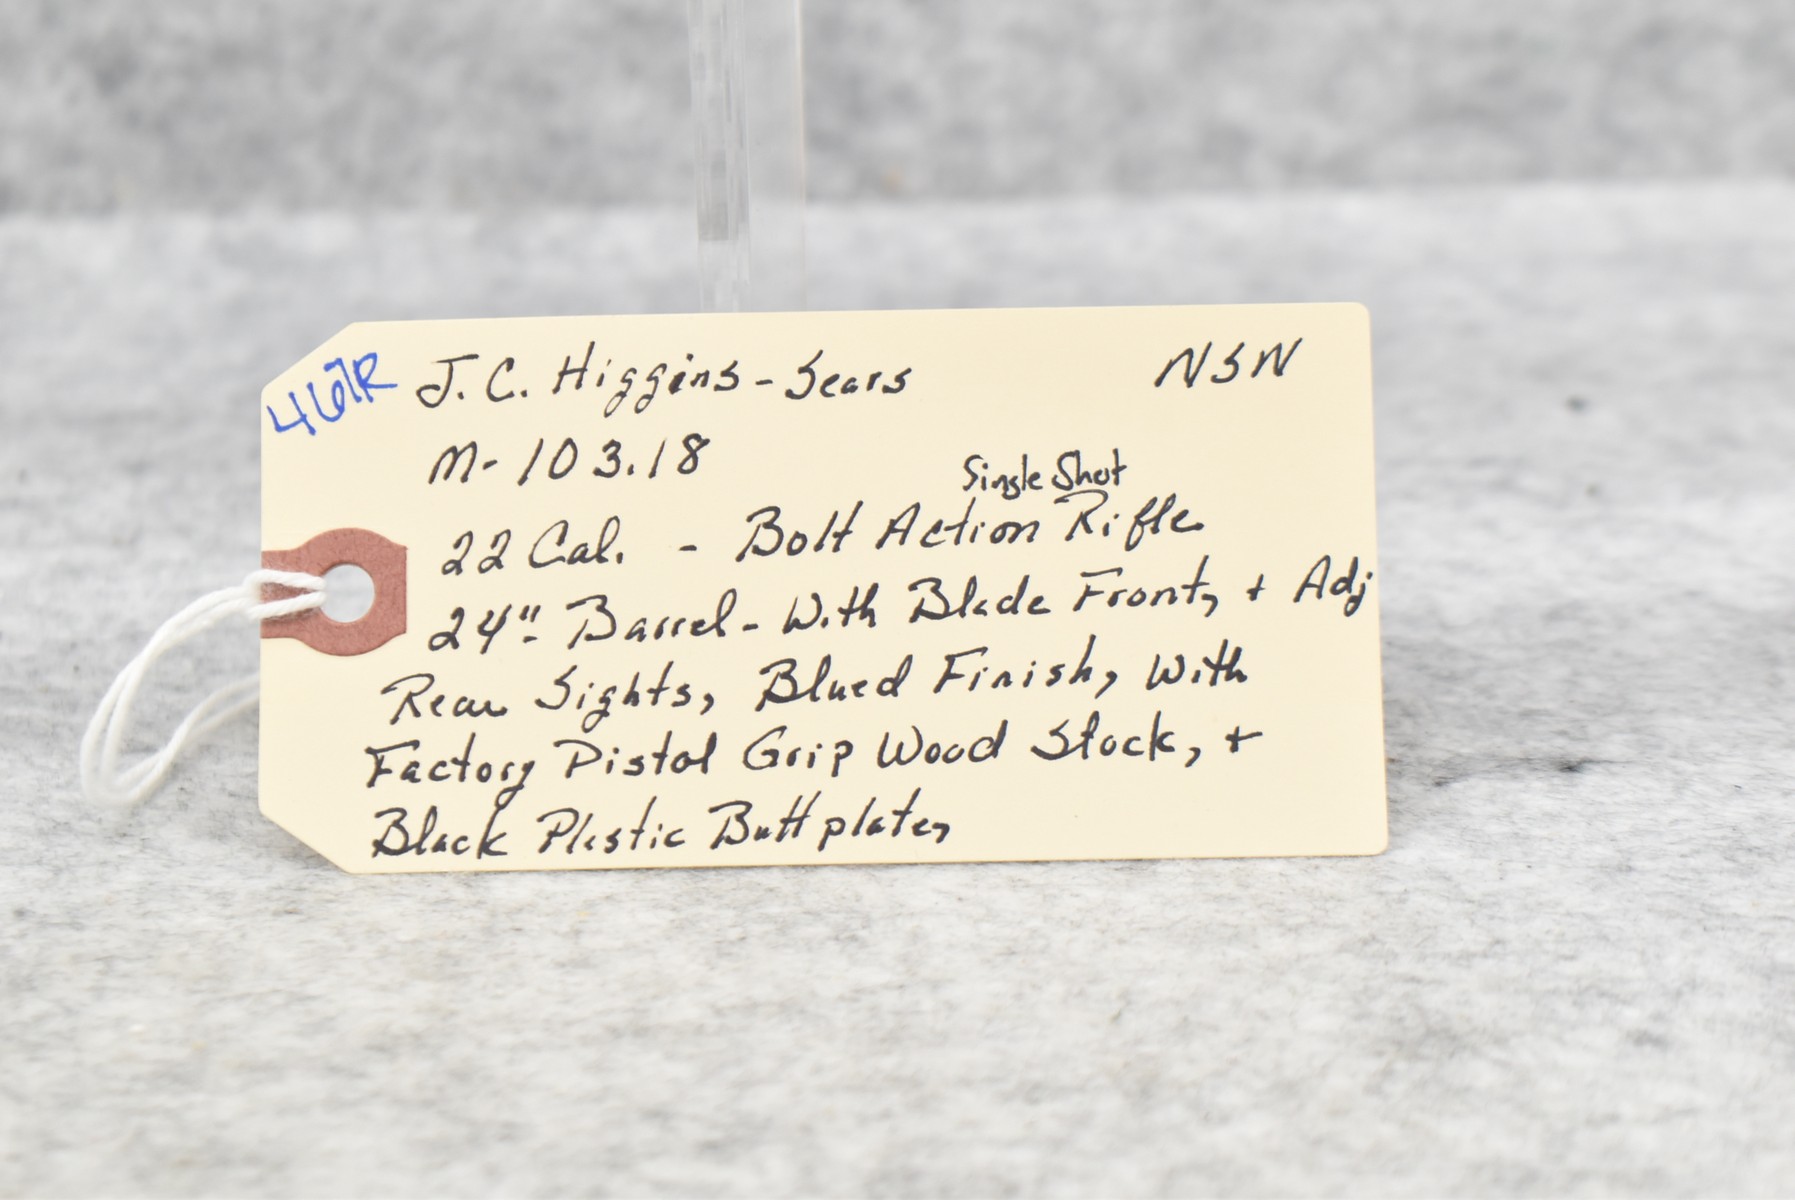 467R
J.C. Higgins - Sears NSN
M-103.18
Single Shot
22 Cal. - Bolt Action Rifle
24"- Barrel - With Blade Front, + Adj
Rear Sights, Blued Finish, With
Factory Pistol Grip Wood Stock, +
Black Plastic Buttplate,